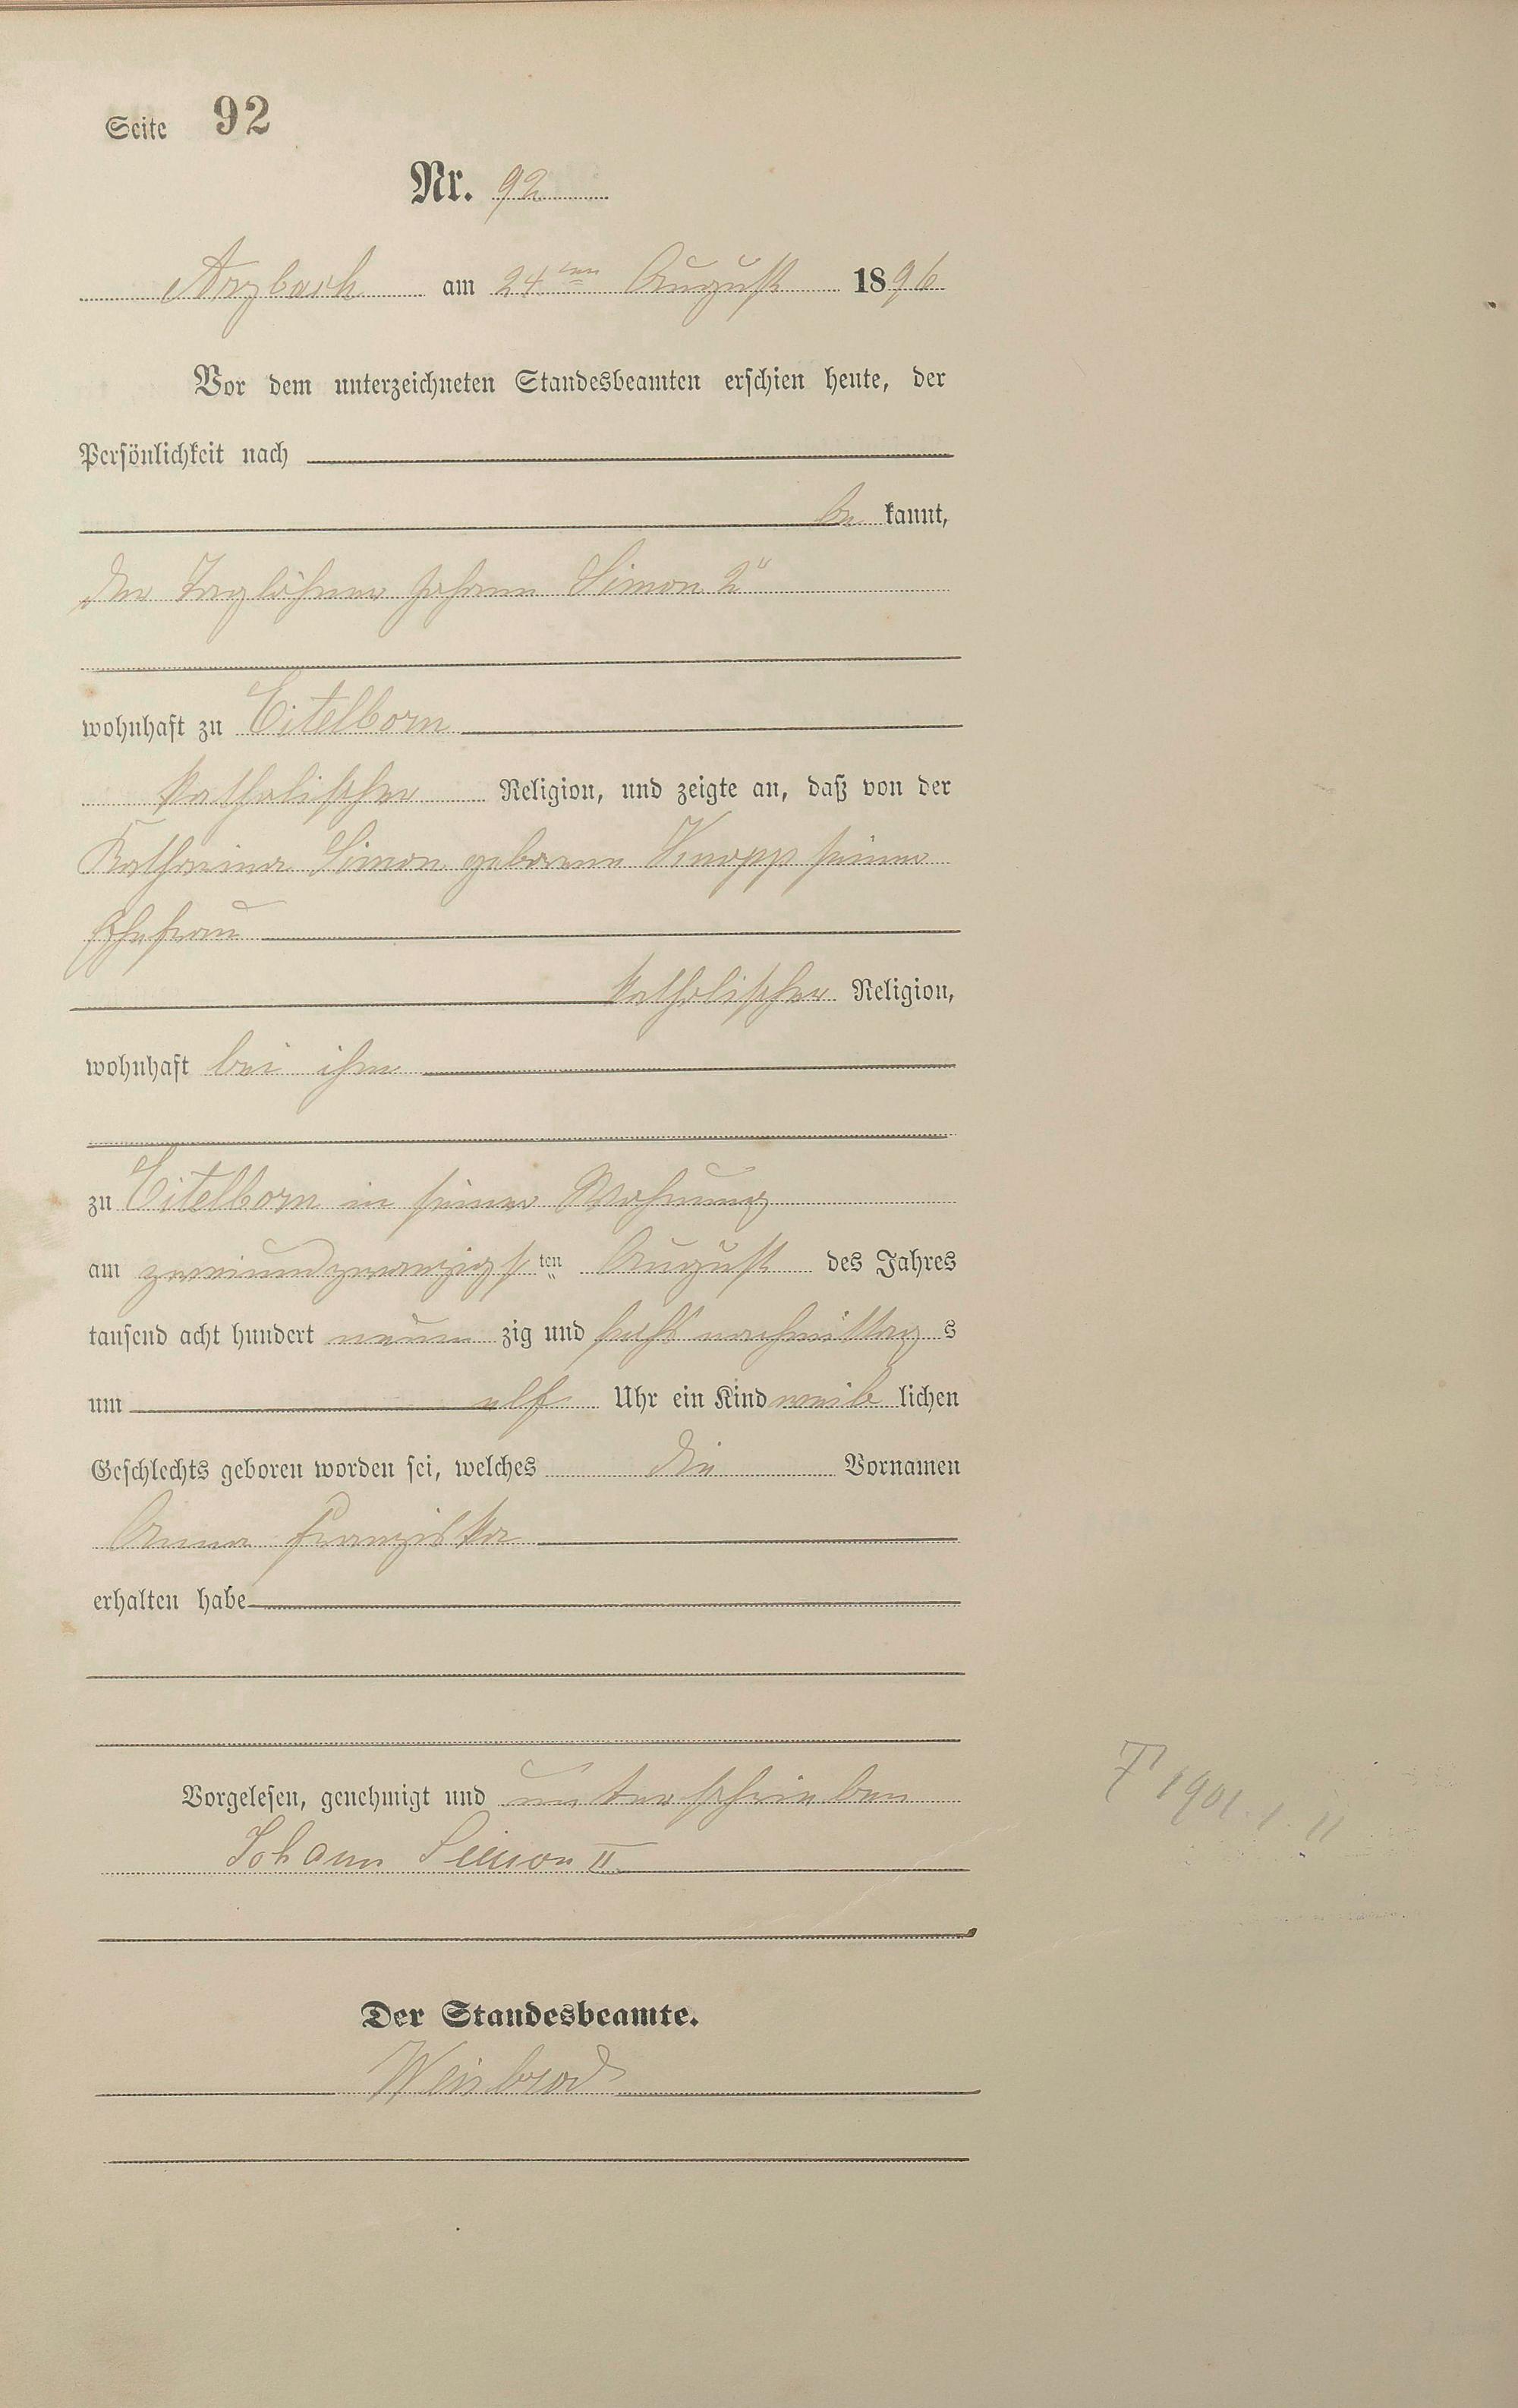 Seite 92
Nr. 92
Arzbach am 24ten August 1896
Vor dem unterzeichneten Standesbeamten erschien heute, der
Persönlichkeit nach
be kannt,
der Taglöhner Johann Simon 2r
wohnhaft zu Eitelborn
katholischer Religion, und zeigte an, daß von der
Katharina Simon geborene Knopp seiner
Ehefrau
katholischer Religion,
wohnhaft bei ihm
zu Eitelborn in seiner Wohnung
am zweiundzwanzigsten August des Jahres
tausend acht hundert neun zig und sechs nachmittag s
um elf Uhr ein Kind weib lichen
Geschlechts geboren worden sei, welches die Vornamen
Anna Franziska
erhalten habe
Vorgelesen, genehmigt und unterschrieben
Johann Simon II
Der Standesbeamte.
Weisbrod